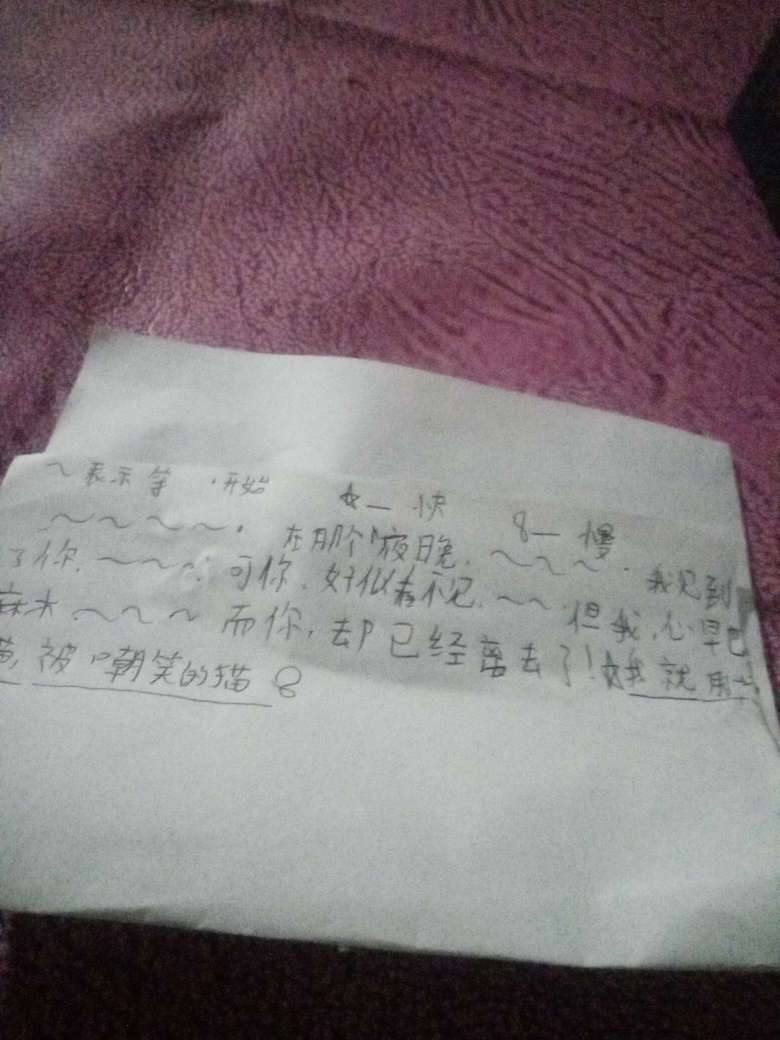 ～表示等 ·开始 ☆— 快 8— 慢
～～～～. 在那个夜晚, ～～～. 我见到
了你, ～～～; 可你, 好似看不见, ～～. 但我, 心早已
麻木, ～～～ 而你, 却已经离去了! ☆我就用
猫, 被嘲笑的猫 8